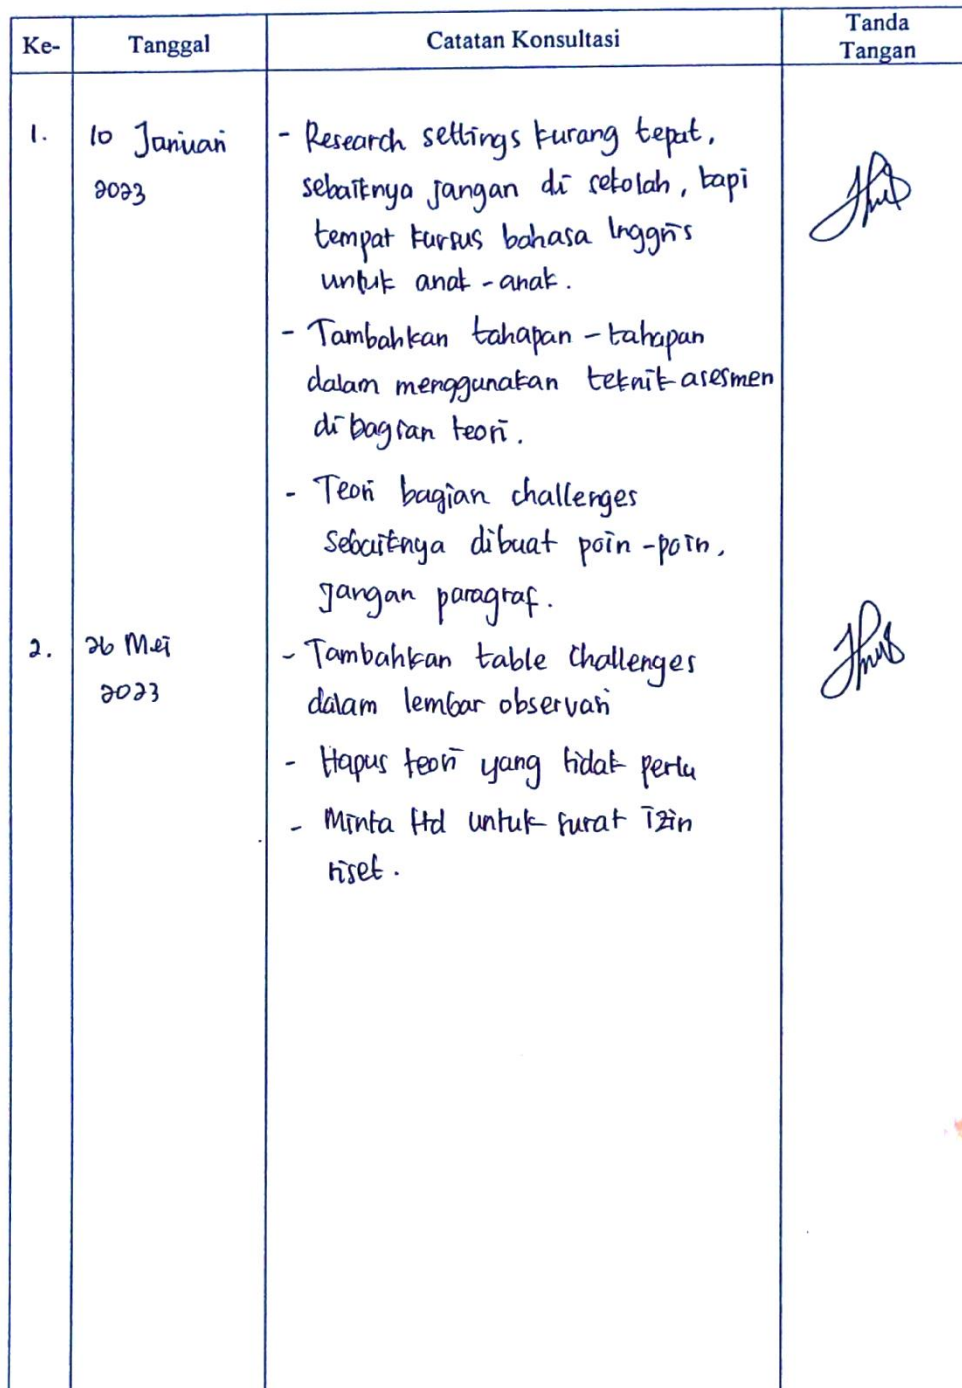 Ke- Tanggal Catatan Konsultasi Tanda
Tangan
1. 10 Januari - Research settings kurang tepat,
2023 sebaiknya jangan di sekolah, tapi
tempat kursus bahasa Inggris
untuk anak-anak.
- Tambahkan tahapan-tahapan
dalam menggunakan teknik asesmen
di bagian teori.
- Teori bagian challenges
sebaiknya dibuat poin-poin,
jangan paragraf.
2. 26 Mei - Tambahkan table challenges
2023 dalam lembar observasi
- Hapus teori yang tidak perlu
- Minta ttd untuk surat izin
riset.